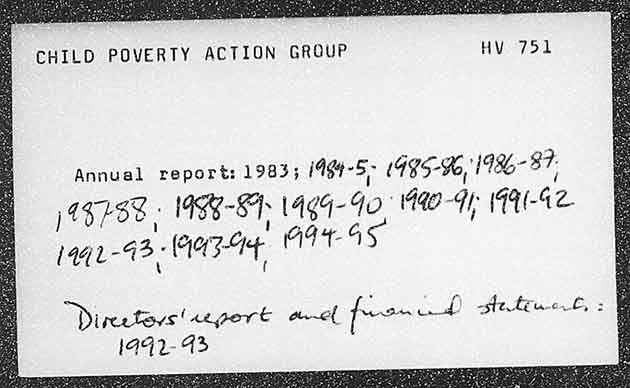 CHILD POVERTY ACTION GROUP HV 751
Annual report: 1983; 1984-5; 1985-86; 1986-87;
1987-88; 1988-89; 1989-90; 1990-91; 1991-92
1992-93; 1993-94; 1994-95
Directors' report and financial statement.:
1992-93